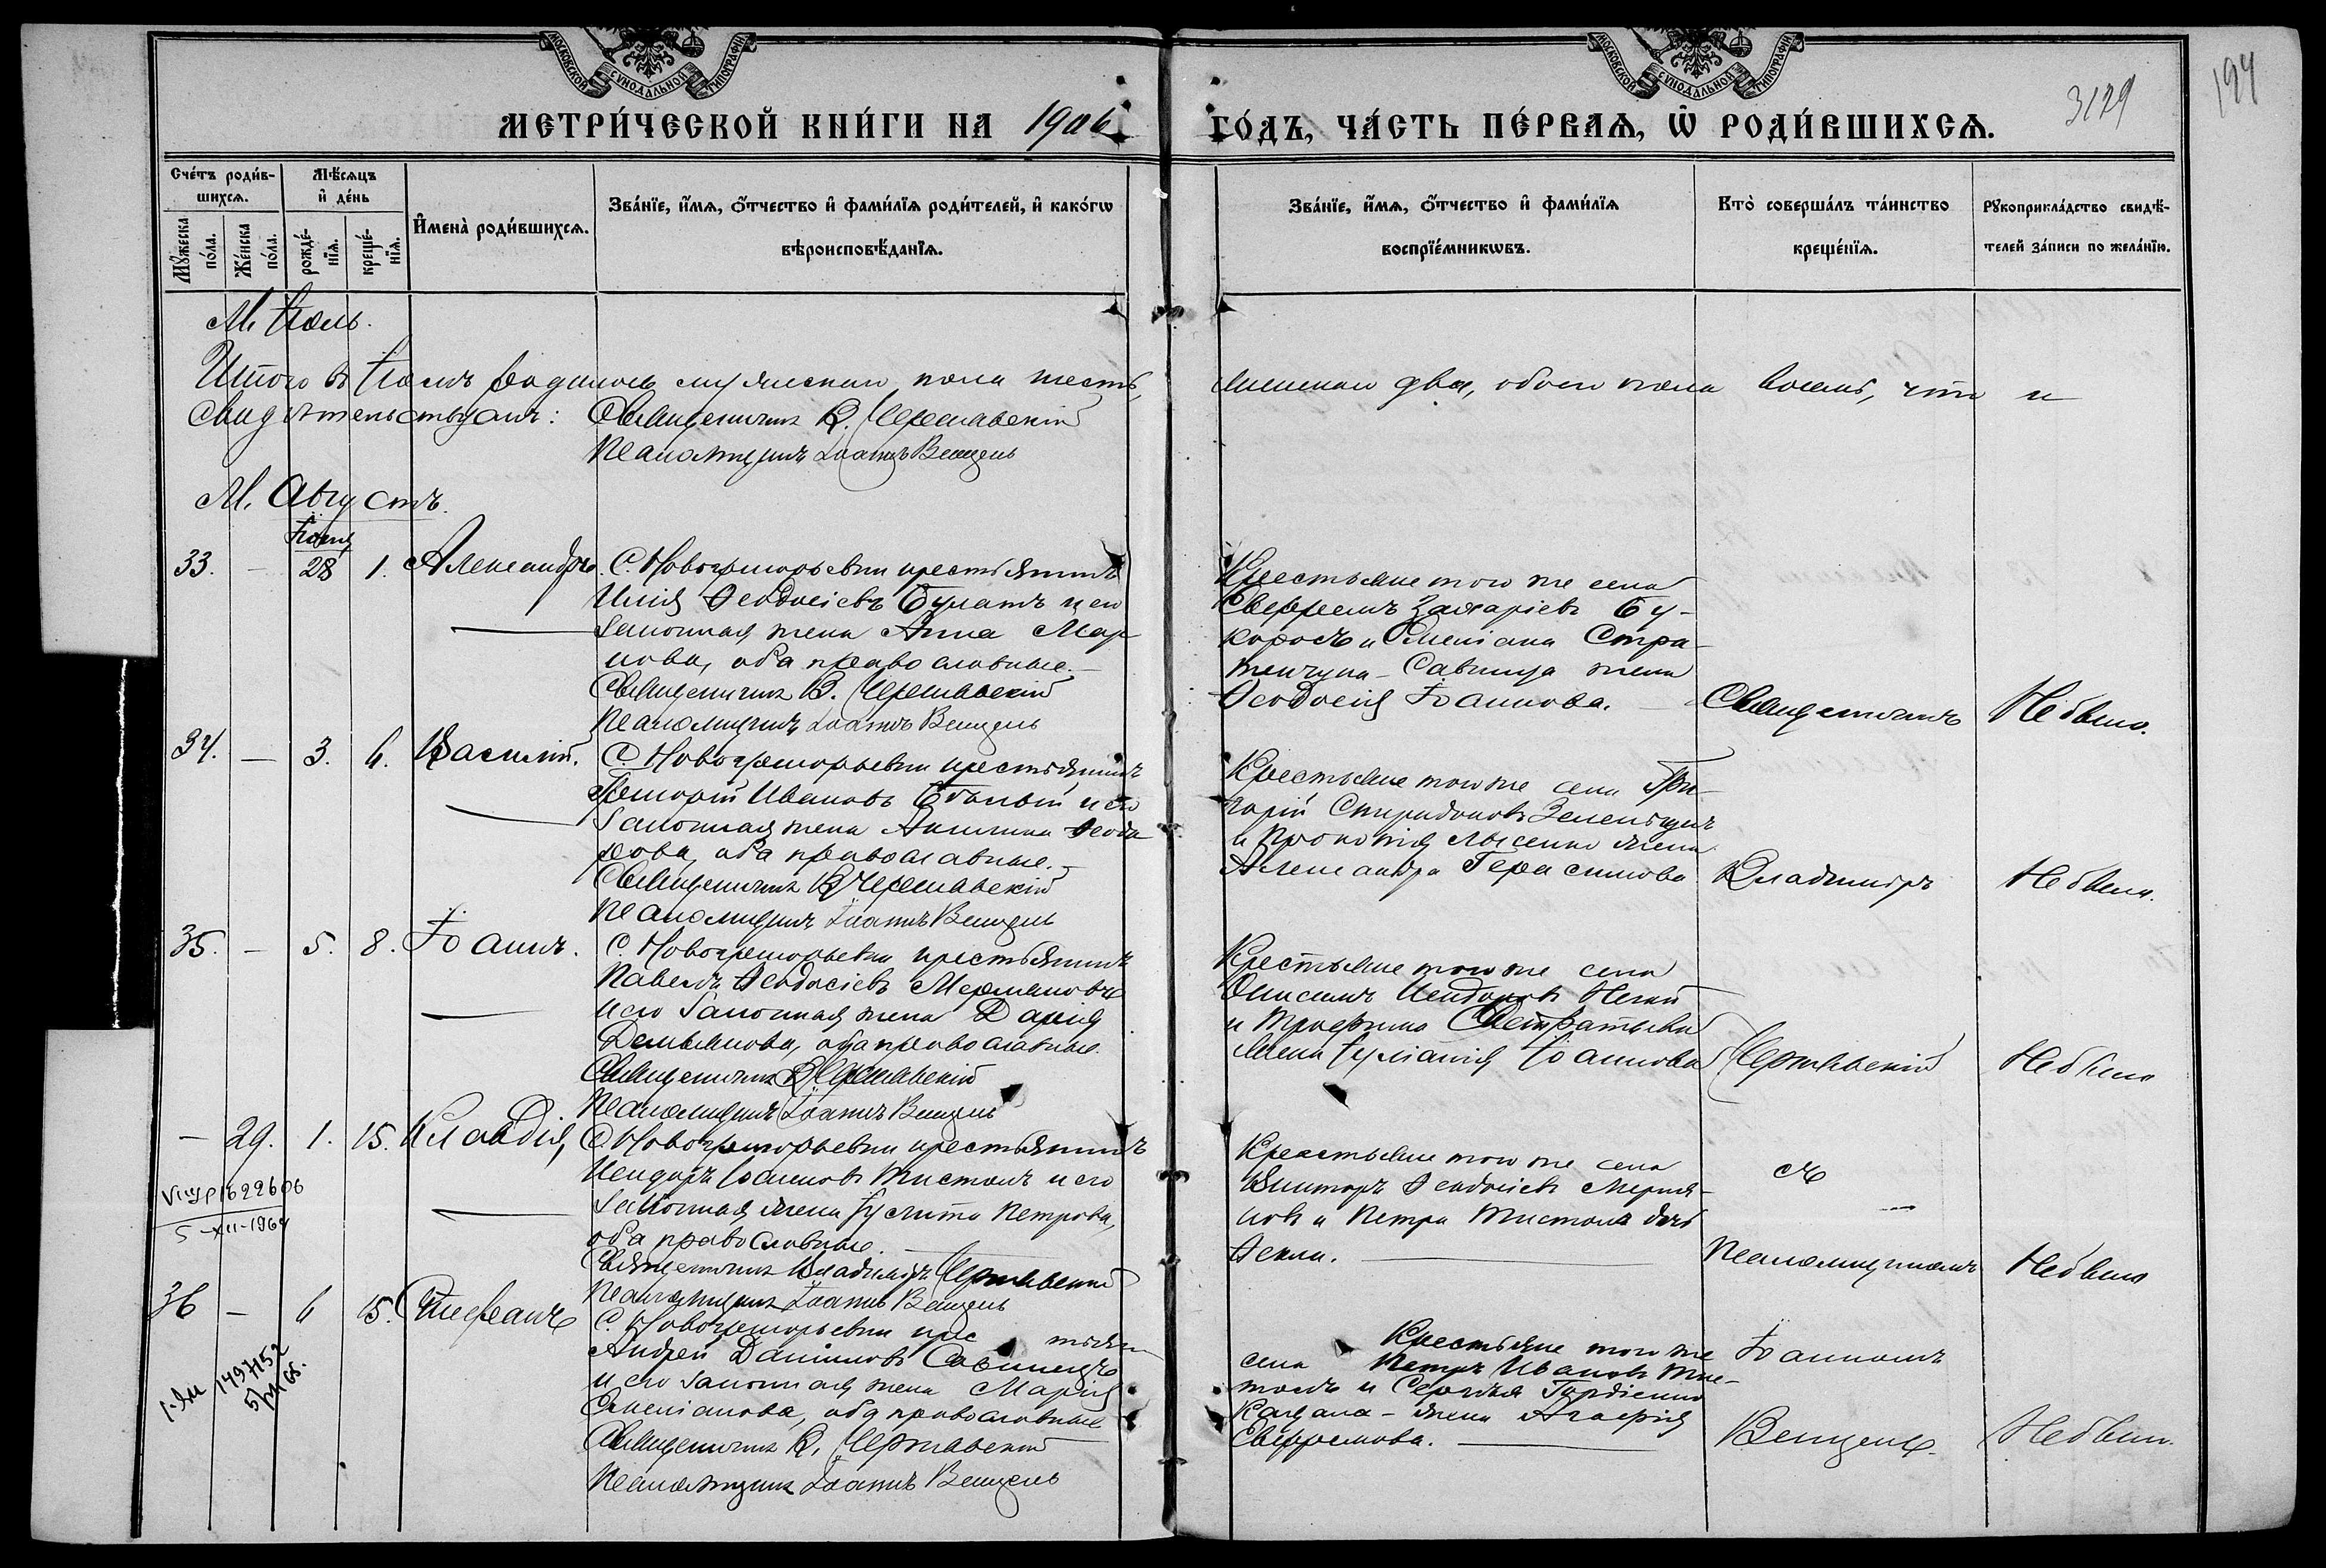 МОСКОВСКОЙ СѴНОДАЛЬНОЙ ТИПОГРАФІИ
МОСКОВСКОЙ СѴНОДАЛЬНОЙ ТИПОГРАФІИ
МЕТРИ́ЧЕСКОЙ КНИ́ГИ НА 1906
ГО́ДЪ, ЧА́СТЬ ПЕ́РВАѦ, Ѡ҆ РОДИ́ВШИХСѦ.
3129
194
Сче́тъ роди́в-
шихсѧ.
Мꙋ́жеска
по́ла.
Же́нска
по́ла.
Мѣ́сѧцъ
и҆ де́нь
рожде́-
нїѧ.
креще́-
нїѧ.
И҆мена̀ роди́вшихсѧ.
Зва́нїе, и҆́мѧ, ѻ҆́тчество и҆ фами́лїѧ роди́телей, и҆ како́гѡ
вѣроисповѣ́данїѧ.
Зва́нїе, и҆́мѧ, ѻ҆́тчество и҆ фами́лїѧ
воспрїе́мникѡвъ.
Кто̀ соверша́лъ та́инство
креще́нїѧ.
Рꙋкоприкла́дство свидѣ́-
телей за́писи по жела́нїю.
М. Іюль.
Итого в Іюлѣ родилось мужескаго пола шесть,
женскаго два, обоего пола восемь, что и
свидѣтельствуемъ: Священникъ В. Чернявскій
Псаломщикъ Іоаннъ Венцель
М. Августъ.
Іюля
33. - 28 1. Александръ. С. Новогригорьевки крестьянинъ
Илія Ѳеодосіевъ Булатъ и его
законная жена Анна Мар-
кова, оба православные.
Священникъ В. Чернявскій
Псаломщикъ Іоаннъ Венцель
Крестьяне того же села
Евфремъ Захаріевъ
и Емеліана
Савинца жена
Ѳеодосія Іоаннова.
Священникъ
Не было.
34. - 3. 6. Василій. С. Новогригорьевки крестьянинъ
Григорій Ивановъ Бѣлый и его
законная жена Акилина Ѳеодо
рова, оба православные.
Священникъ В Чернявскій
Псаломщикъ Іоаннъ Венцель
Крестьяне того же села Гри-
горій Спиридоновъ
и Прокопія Лысенко жена
Александра Герасимова
Владиміръ
Не было.
35. - 5. 8. Іоаннъ. С. Новогригорьевки крестьянинъ
Павелъ Ѳеодосіевъ
и его законная жена Дарія
Демьянова, оба православные.
Священникъ В Чернявскій
Псаломщикъ Іоаннъ Венцель
Крестьяне того же села
Онисимъ Исидоровъ
и Трофима
жена Іуліанія Іоаннова
Чернявскій
Не было
- 29. 1. 15. Клавдія, С. Новогригорьевки крестьянинъ
Исидоръ Іоанновъ Тистолъ и его
законная жена Іулита Петрова,
оба православные.
Священникъ Владиміръ Чернявскій
Псаломщикъ Іоаннъ Венцель
Крестьяне того же села
Викторъ Ѳеодосіевъ
и Петра Тистола дочь
Ѳекла.
съ
Псаломщикомъ
Не было
1622606
5-XII-1964
36 - 6 15. Стефанъ С. Новогригорьевки крес тьян
Андрей Даніиловъ Савинецъ
и его законная жена Марія
Емеліанова, оба православные
Священникъ В. Чернявскій
Псаломщикъ Іоаннъ Венцель
Крестьяне того же
села Петръ Ивановъ Тис-
толъ и Сергѣя Гордіенко
жена Агафія
Евфремова.
Іоанномъ
Венцель.
Не было.
1497152